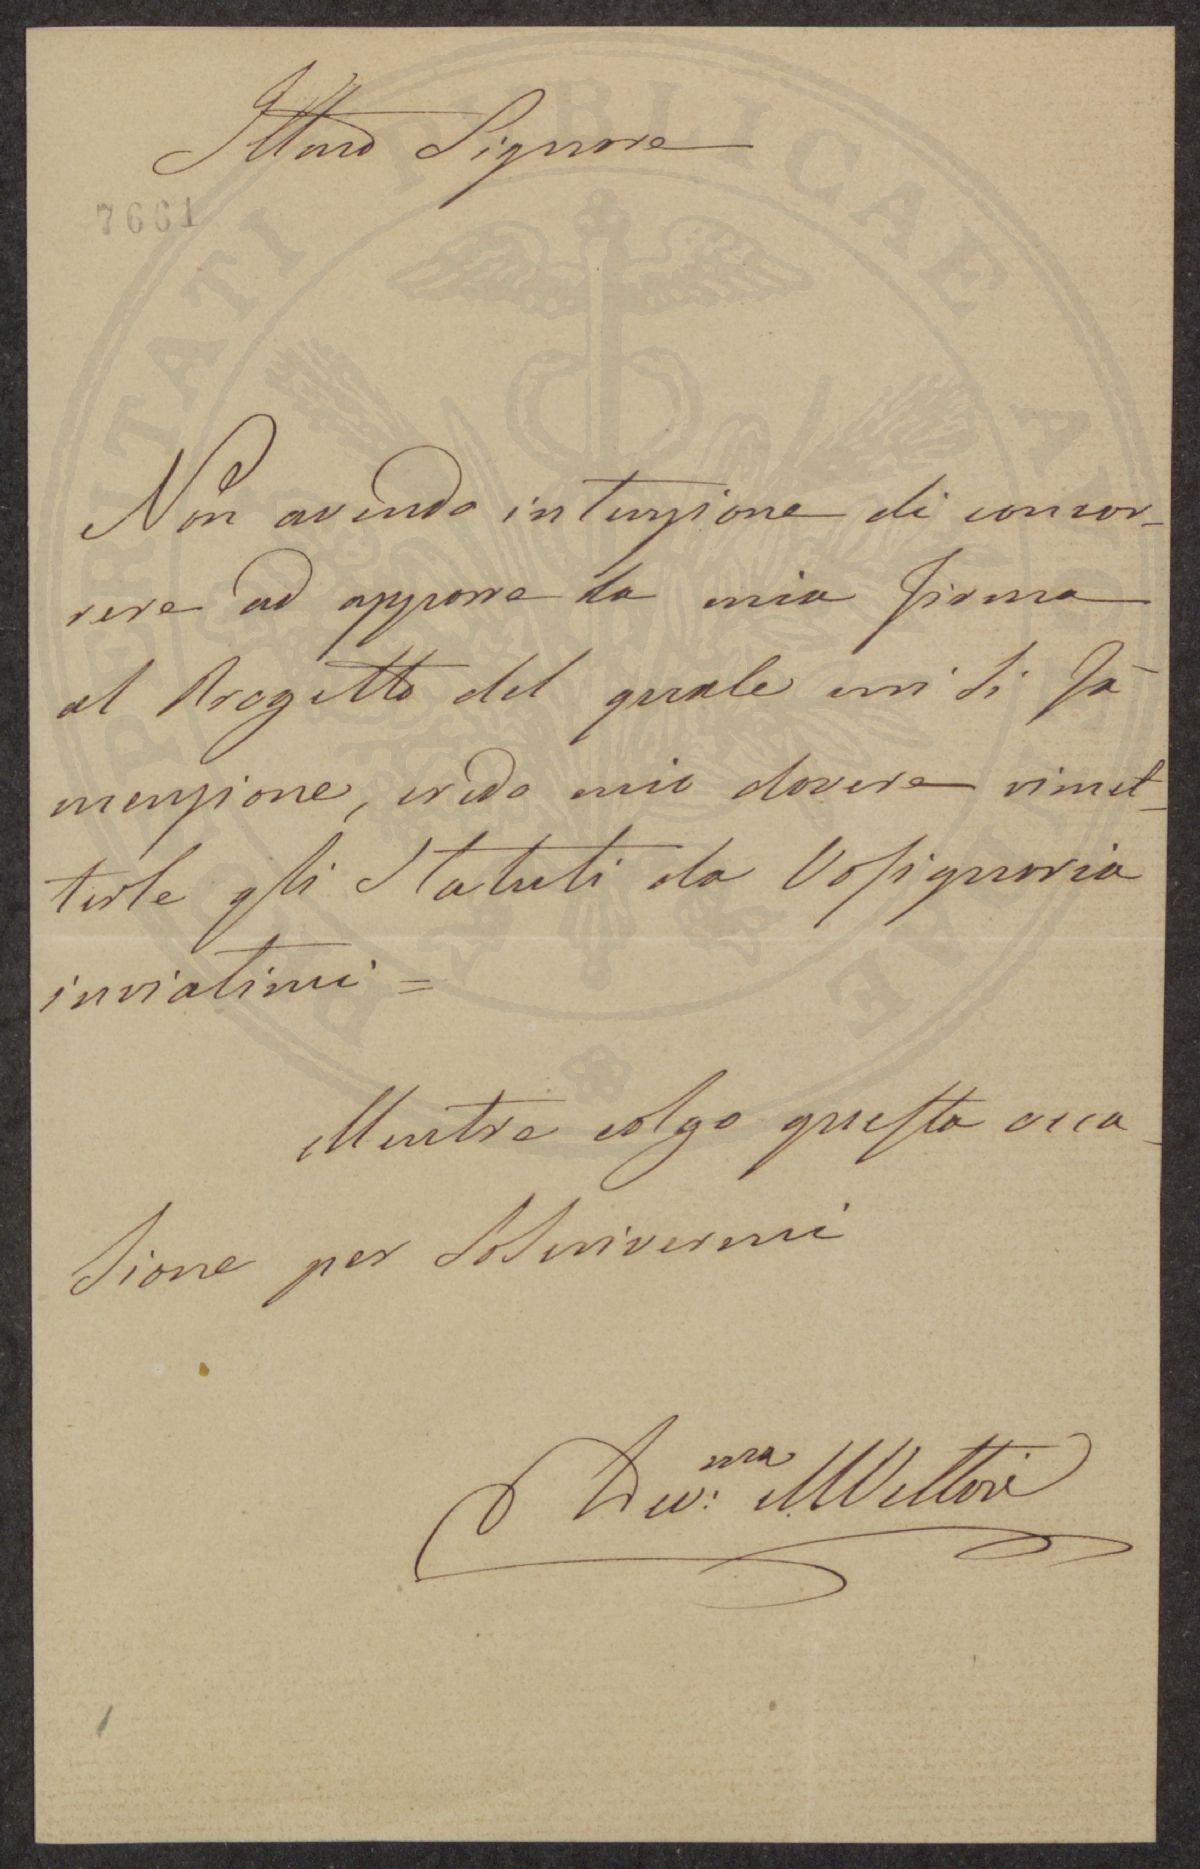 Illmo Signore
7661
Non avendo intenzione di concor-
rere ad apporre la mia firma
al Progetto del quale mi si fà
menzione, credo mio dovere rimet-
terle gli Statuti da Vosignoria
inviatimi =
Mentre colgo questa occa-
sione per soscrivermi
Dev:ma M. Vettori
PROSPERITATI PUBLICAE AUGENDAE